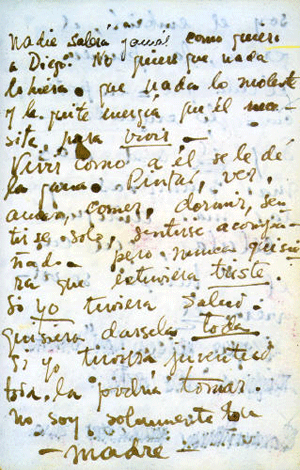 Nadie sabrá jamás como quiero
a Diego. No quiero que nada
lo hiera. que nada lo moleste
y le quite energía que él nece
sita para vivir —
Vivir como a él se le dé
la gana. Pintar, ver,
amar, comer, dormir, sen
tirse solo, sentirse acompa
ñado. — pero nunca quisie
ra que estuviera triste.
Si yo tuviera salud.
quisiera darsela toda
si yo tuviera juventud
toda la podría tomar.
no soy solamente tu
— madre —